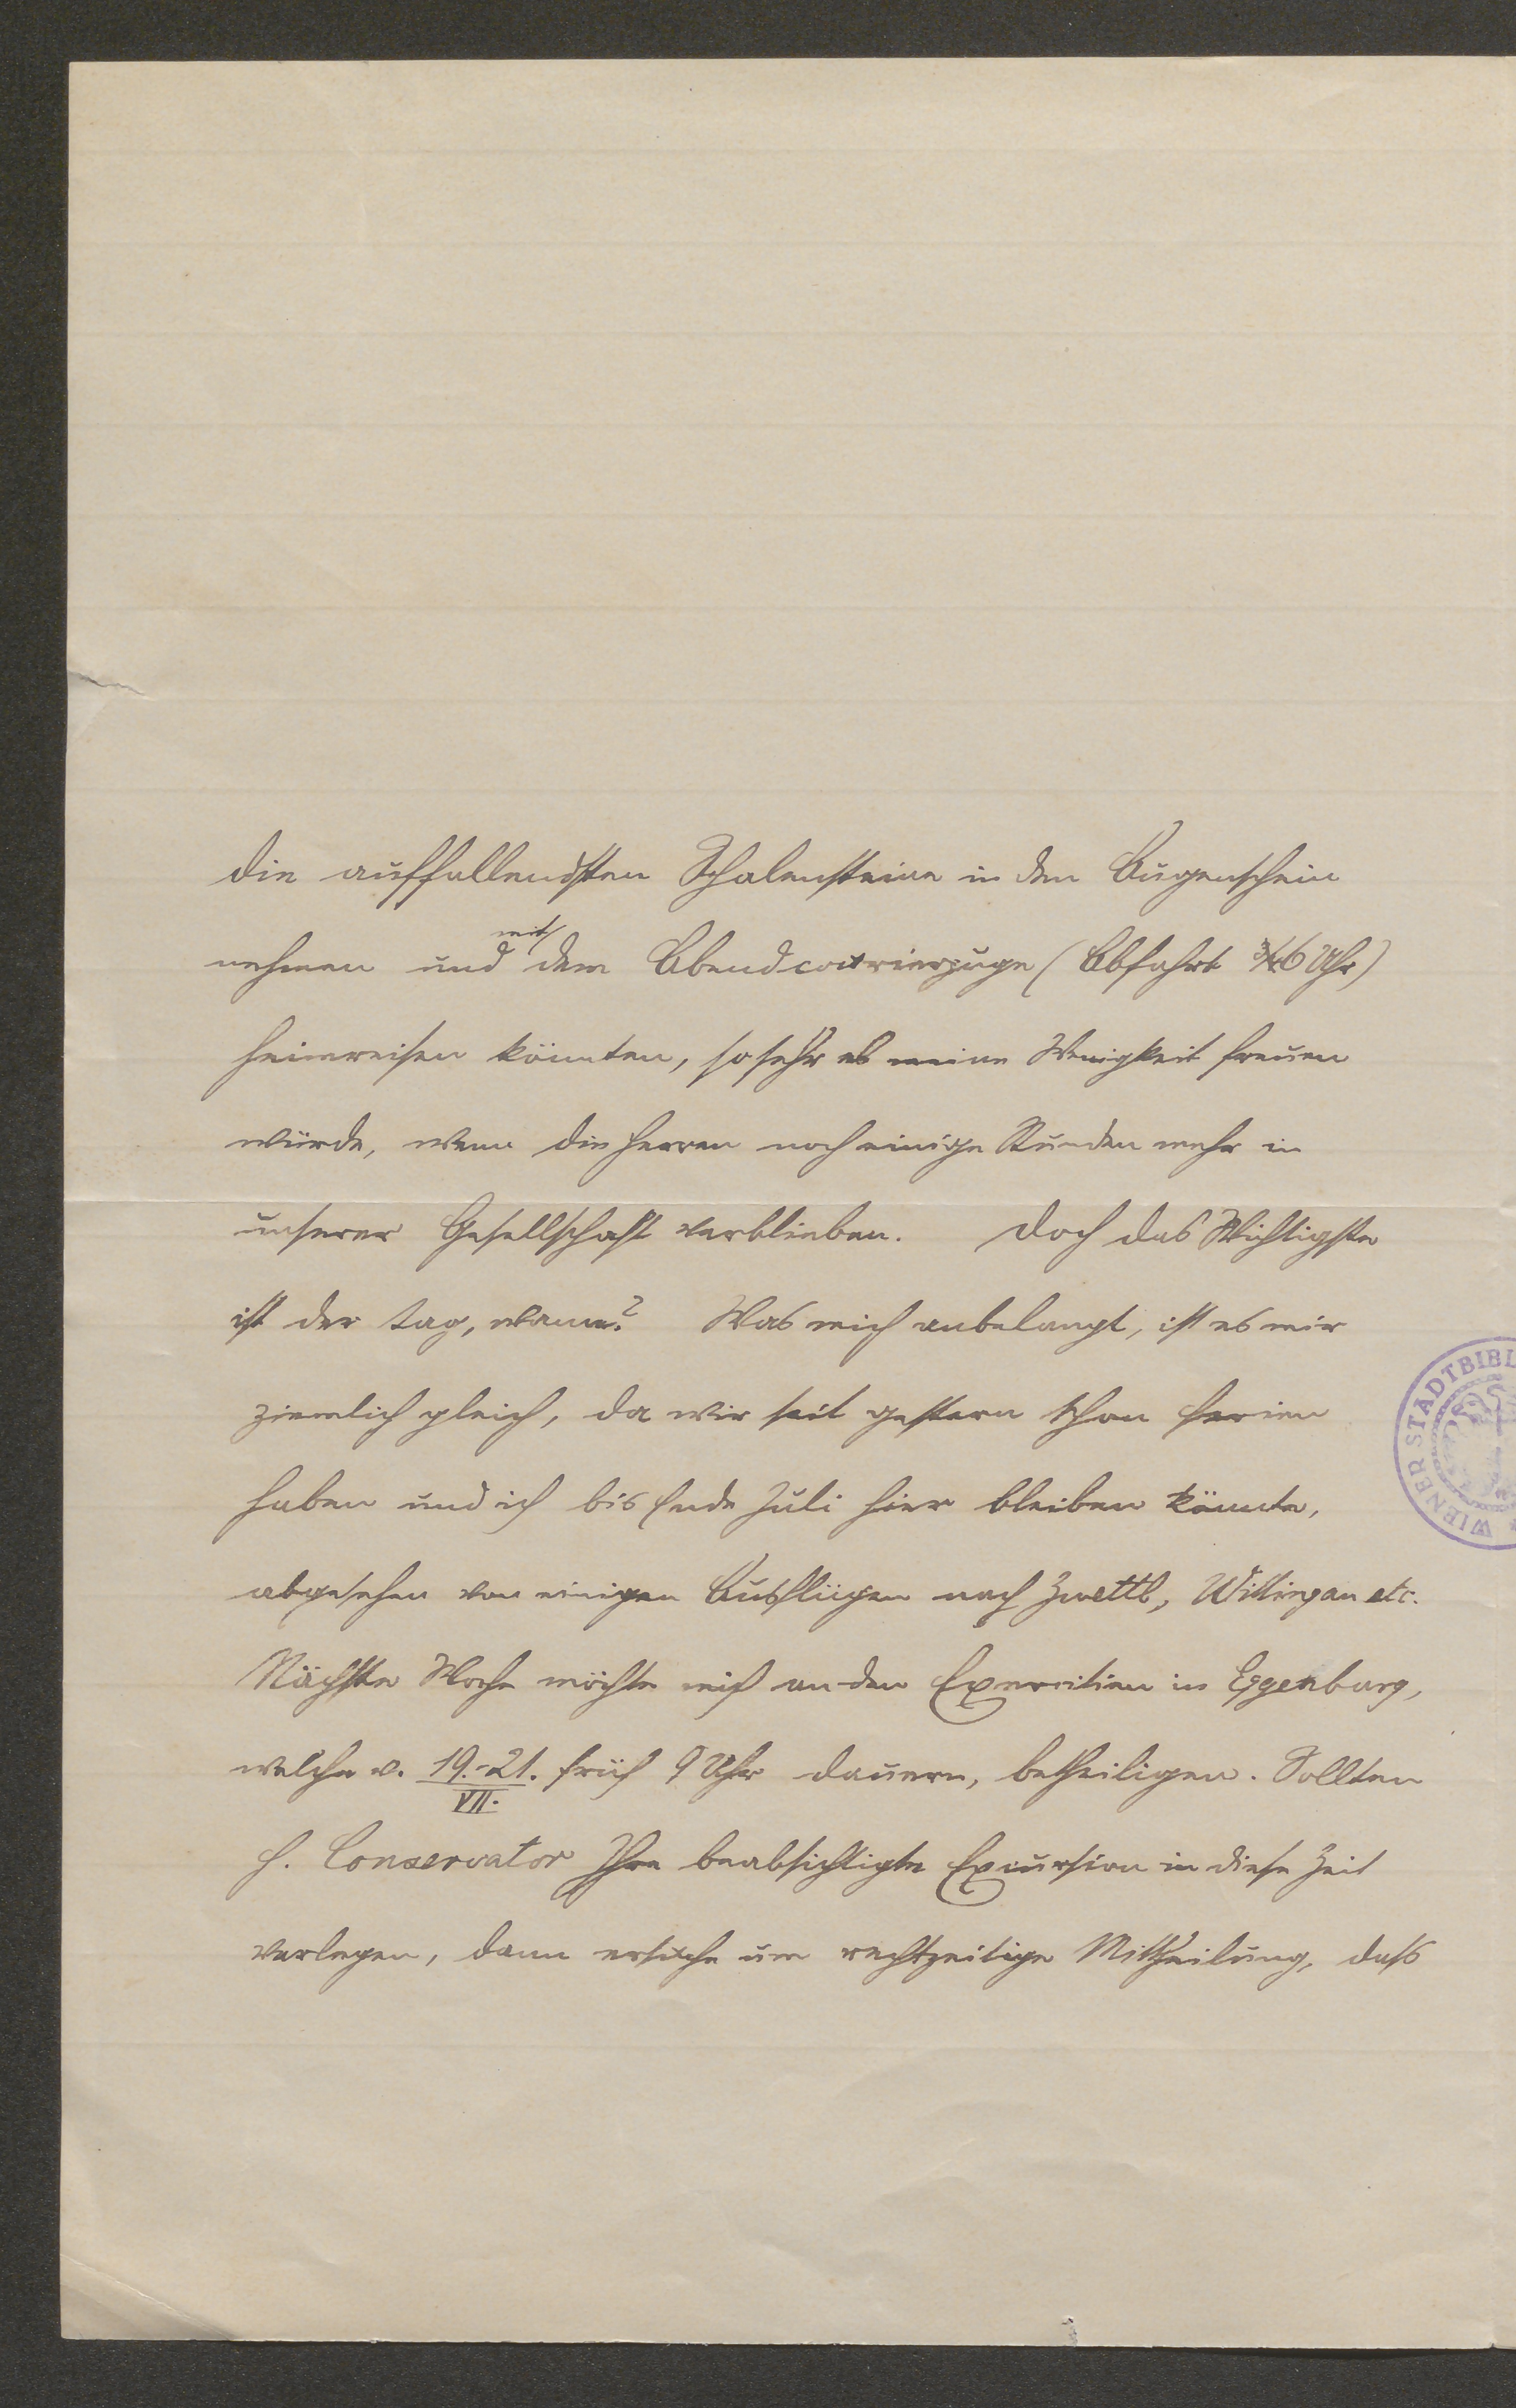 die auffallendsten Schalensteine in den Augenschein
nehmen und mit dem Abendcourierzuge (Abfahrt ¾6 Uhr)
heimreisen könnten, so sehr es meine Wenigkeit freuen
würde, wenn die Herren noch einige Stunden mehr in
unserer Gesellschaft verblieben. Doch das Wichtigste
ist der Tag, wann? Was mich anbelangt, ist es mir
ziemlich gleich, da wir seit gestern schon Ferien
haben und ich bis Ende Juli hier bleiben könnte,
abgesehen von einigen Ausflügen nach Zwettl, Wittingau etc.
Nächste Woche möchte mich an den Exercitien in Eggenburg,
welche v. 19.-21. VII. früh 9 Uhr dauern, betheiligen. Sollten
H. Conservator Ihre beabsichtigte Excursion in diese Zeit
verlegen, dann ersuche um rechtzeitige Mittheilung, dass
WIENER STADTBIBL